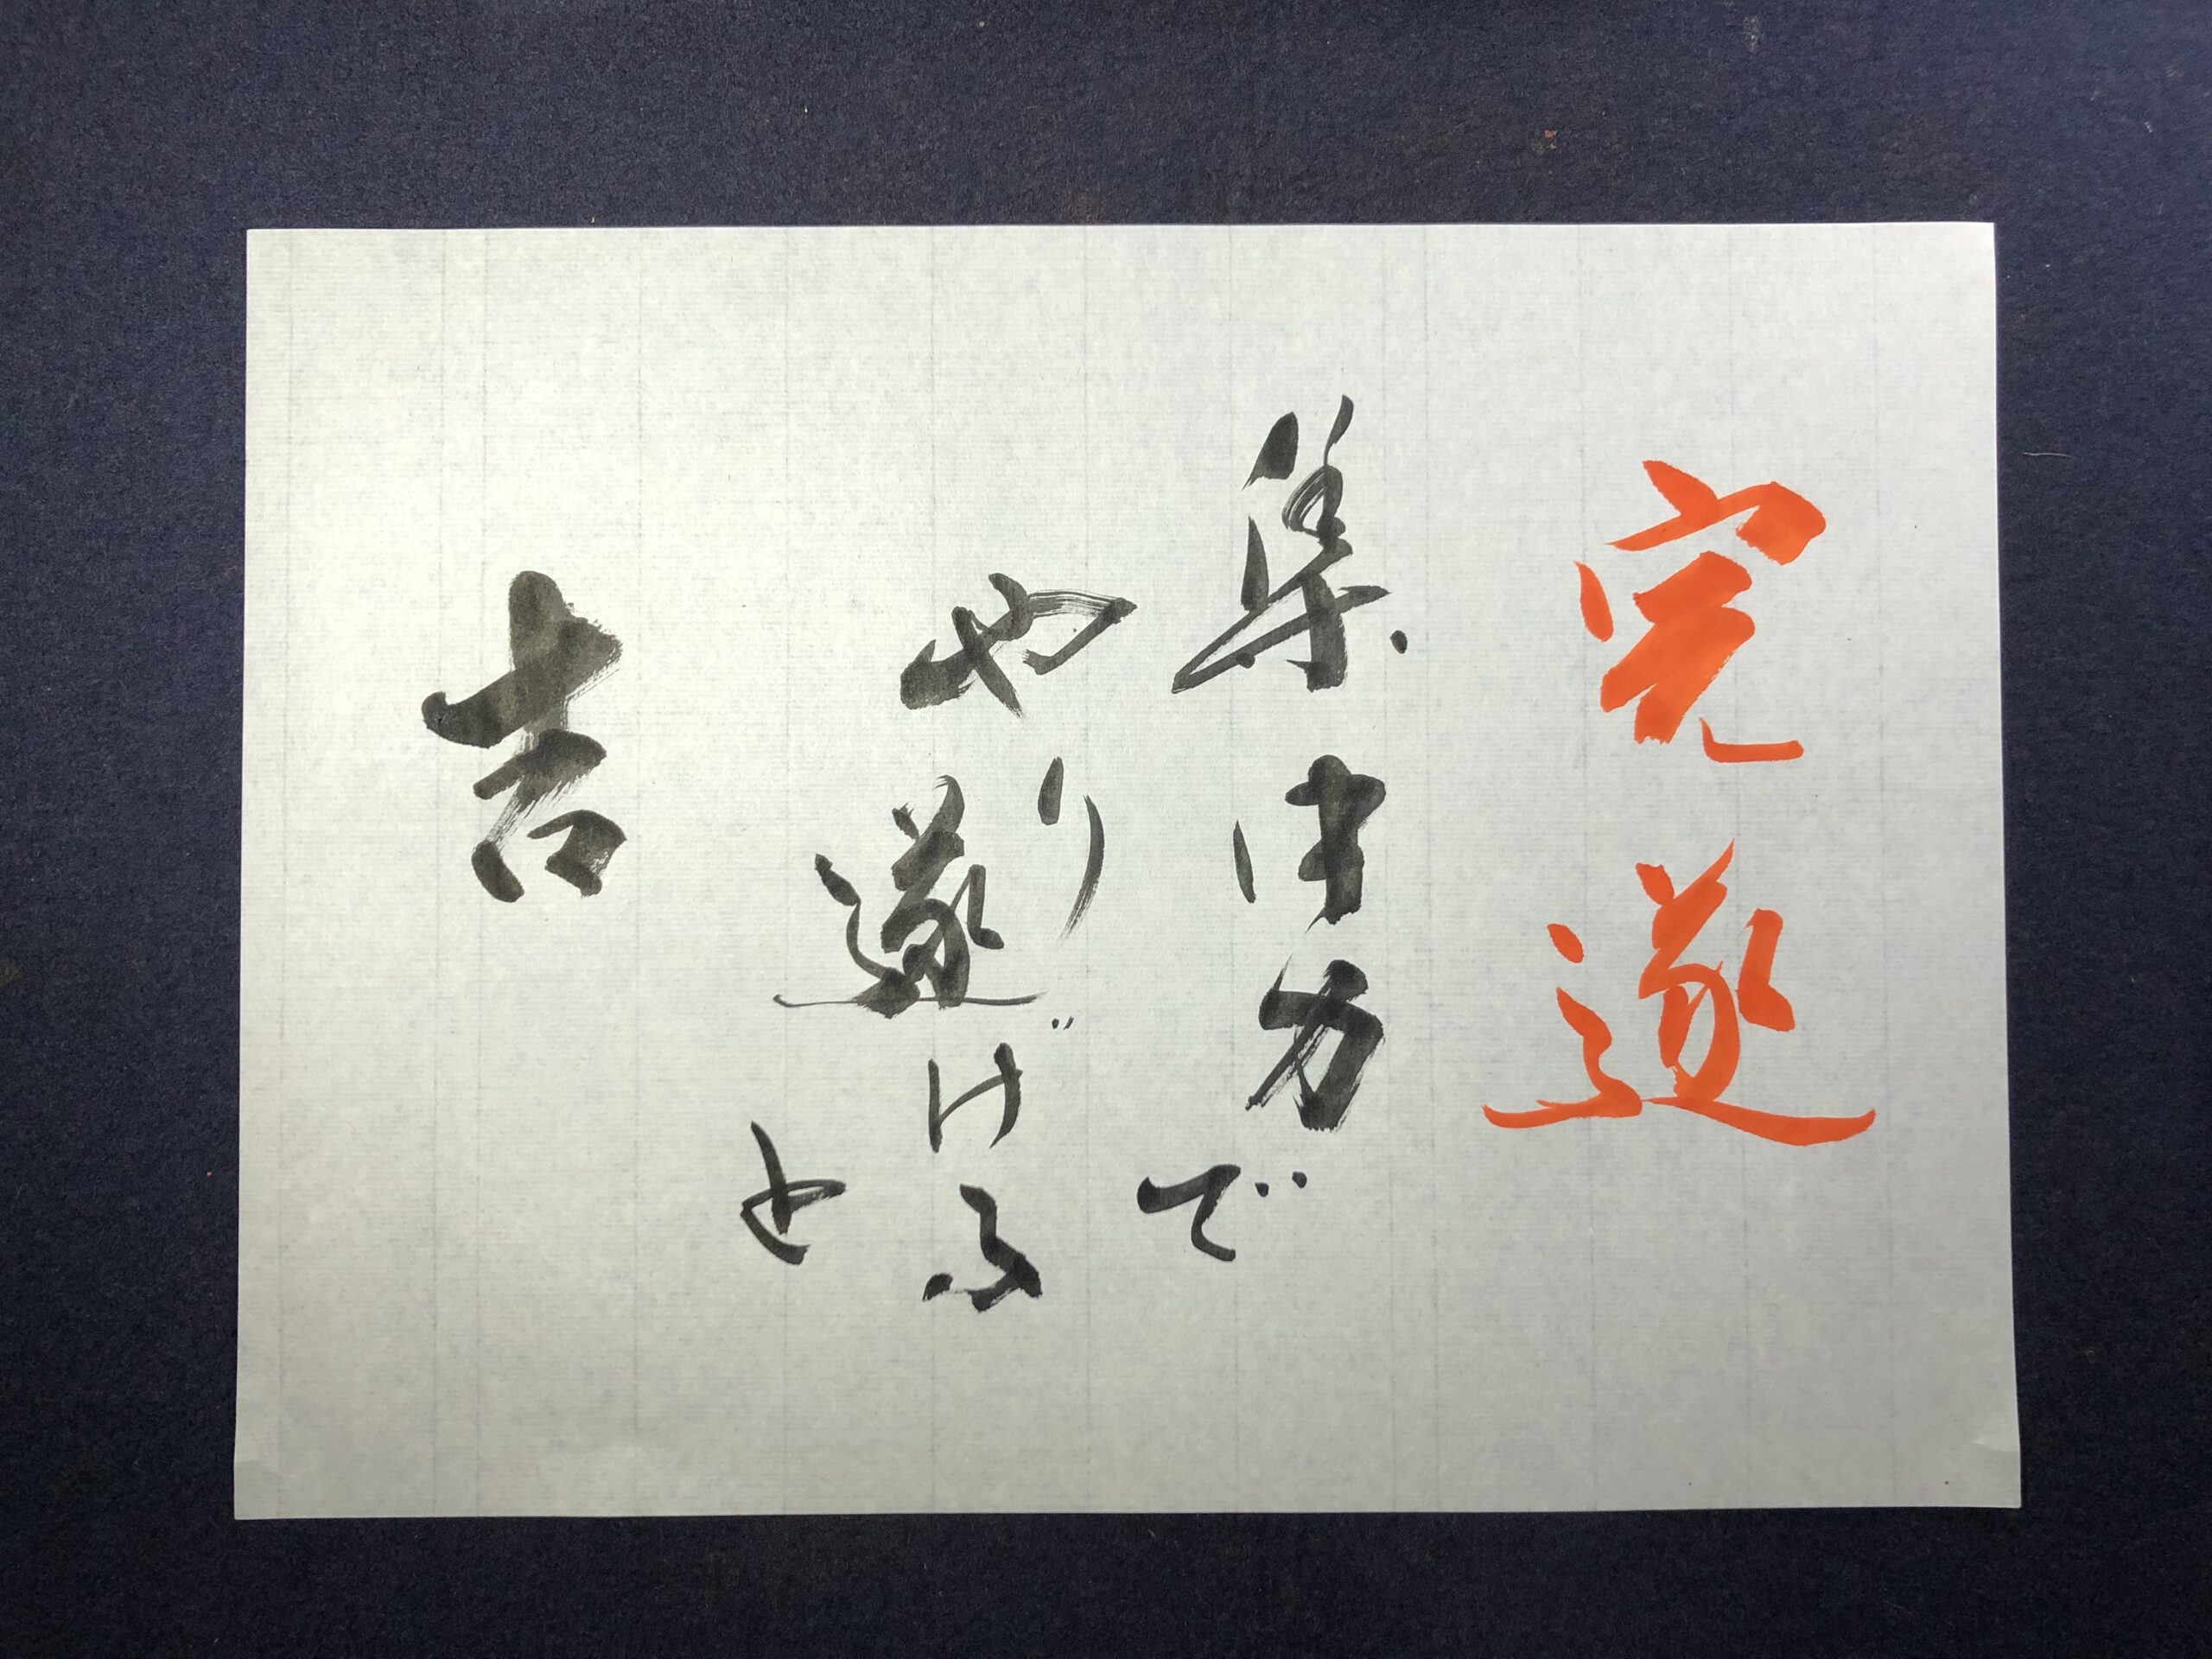 完遂
集中力で
やり遂げる
と
吉